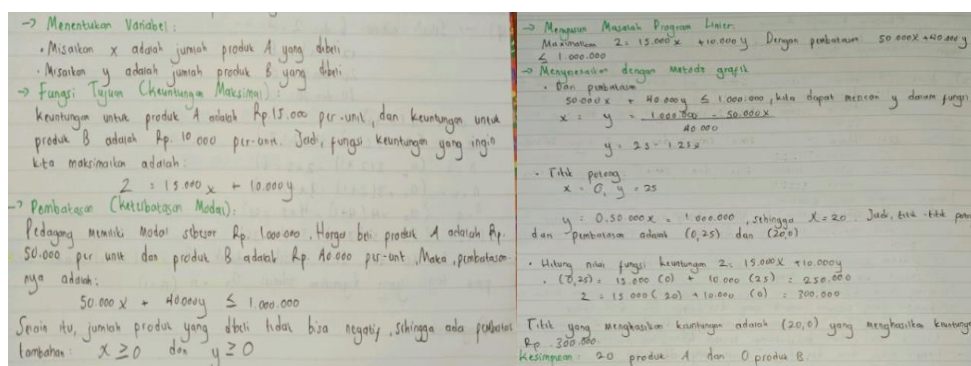 → Menentukan Variabel :
• Misalkan x adalah jumlah produk A yang dibeli
• Misalkan y adalah jumlah produk B yang dibeli
→ Fungsi Tujuan (Keuntungan Maksimal) :
Keuntungan untuk produk A adalah Rp. 15.000 per-unit, dan keuntungan untuk
produk B adalah Rp. 10 000 per-unit. Jadi, fungsi keuntungan yang ingin
kita maksimalkan adalah :
Z = 15.000 x + 10.000 y
→ Pembatasan (Keterbatasan Modal) :
Pedagang memiliki modal sebesar Rp. 1.000.000. Harga beli produk A adalah Rp.
50.000 per unit dan produk B adalah Rp. 40.000 per-unit. Maka, pembatasan
nya adalah :
50.000 x + 40000y ≤ 1.000.000
Selain itu, jumlah produk yang dibeli tidak bisa negatif, sehingga ada pembatas
tambahan : x ≥ 0 dan y ≥ 0
→ Menyusun Masalah Program Linier.
Maximalkan Z = 15.000 x + 10.000 y. Dengan pembatasan 50 000x + 40.000 y
≤ 1.000.000
→ Menyelesaikan dengan metode grafik
• Dari pembatasan
50.000x + 40 000y ≤ 1.000.000, kita dapat mencari y dalam fungsi
x : y = 1.000.000 - 50.000x
40.000
y = 25 - 1.25x
• Titik potong
x = 0, y = 25
y = 0, 50.000 x = 1.000.000, sehingga x = 20. Jadi, titik-titik
dan pembatasan adalah (0,25) dan (20,0)
• Hitung nilai fungsi keuntungan Z = 15.000x + 10.000y
• (0,25) = 15.000 (0) + 10.000 (25) = 250.000
Z = 15 000 (20) + 10.000 (0) = 300.000
Titik yang menghasilkan keuntungan adalah (20,0) yang menghasilkan keuntung
Rp. 300.000
Kesimpulan : 20 produk A dan 0 produk B.